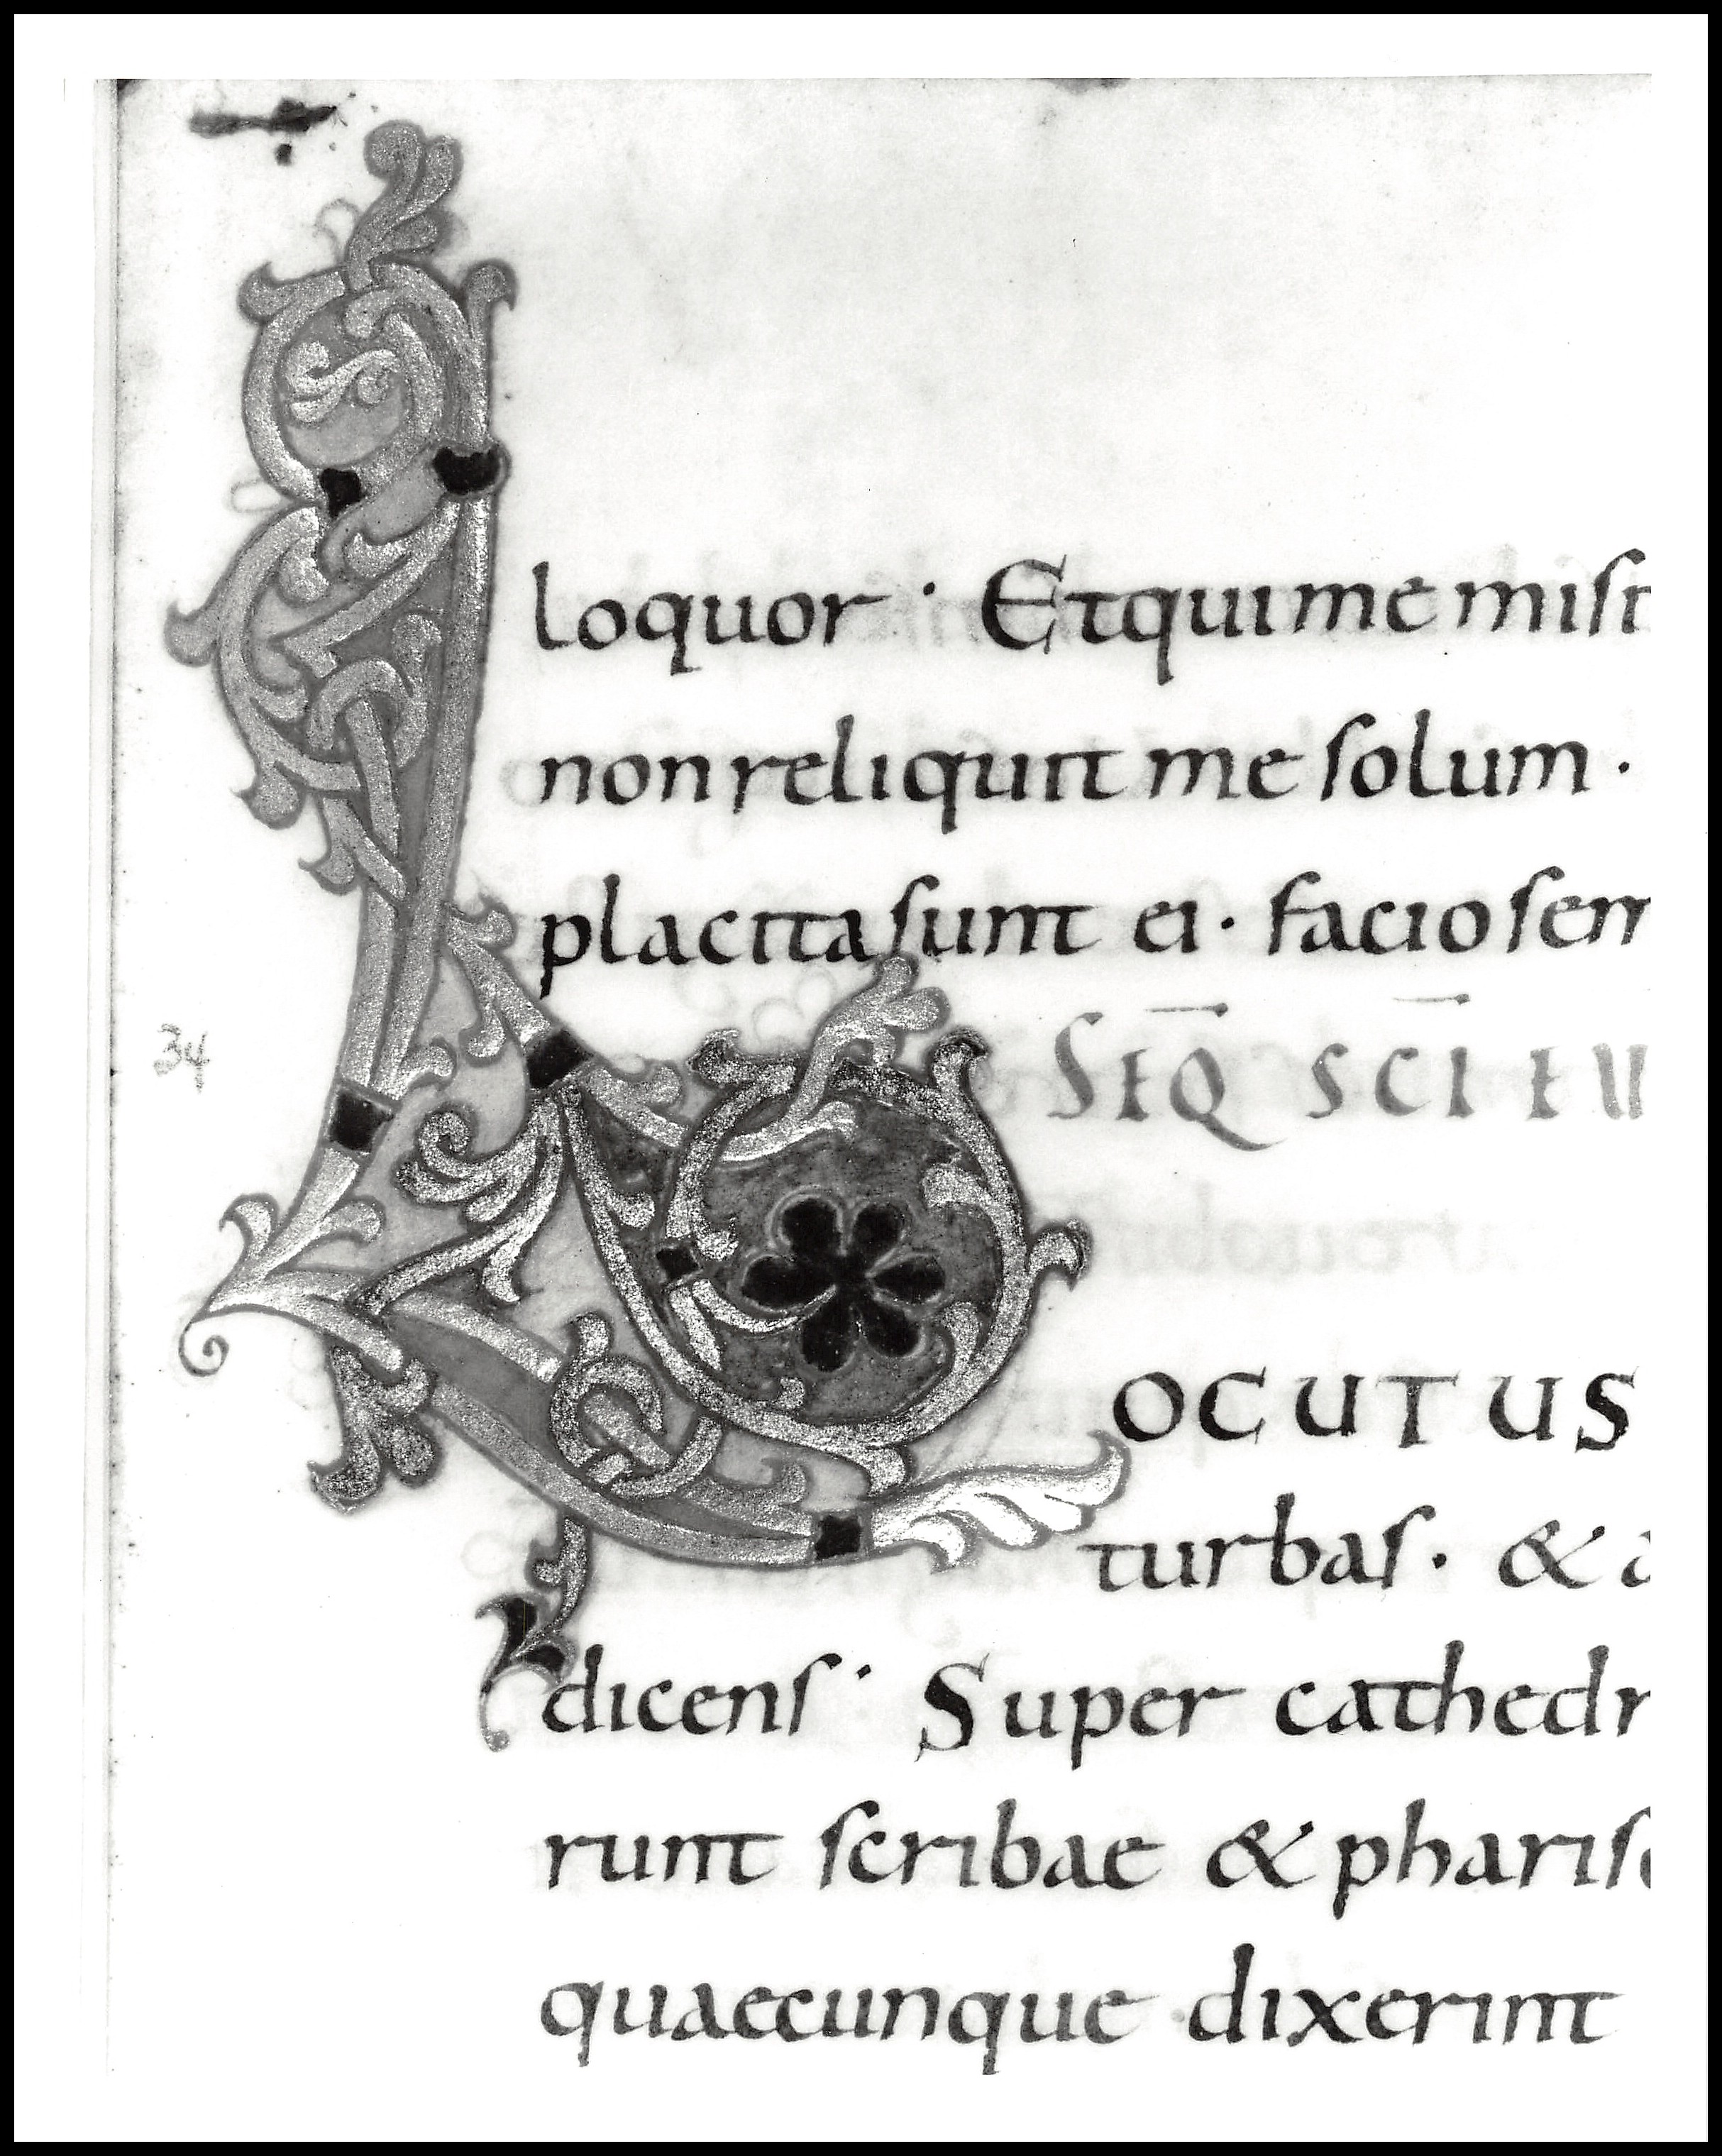 loquor · Et qui me misit
non reliquit me solum ·
placita sunt ei · facio sem
34
SEQ SCI EU
LOCUTUS
turbas · & a
dicens · Super cathedr
runt scribae & pharis
quaecunque dixerint